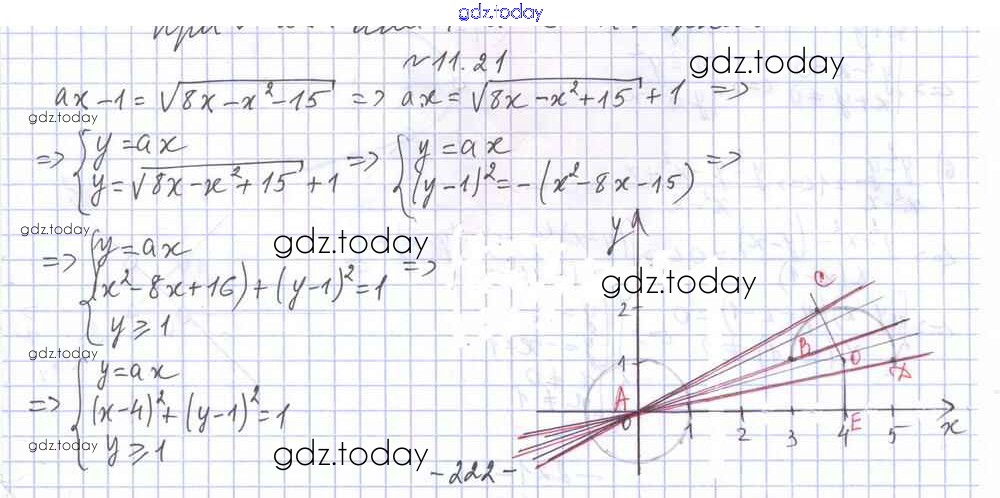 gdz.today
при
N 11.21
gdz.today
ax-1 = √(8x-x²-15) => ax = √(8x-x²+15) + 1 =>
gdz.today
=> { y = ax
y = √(8x-x²+15) + 1 => { y = ax
(y-1)² = -(x²-8x-15) =>
gdz.today
=> { y = ax
(x²-8x+16) + (y-1)² = 1 =>
y ≥ 1
gdz.today
gdz.today
gdz.today
=> { y = ax
(x-4)² + (y-1)² = 1
y ≥ 1
gdz.today
gdz.today
y
2
1
C
B
O
D
A
0
1
2
3
4
E
5
x
-222-